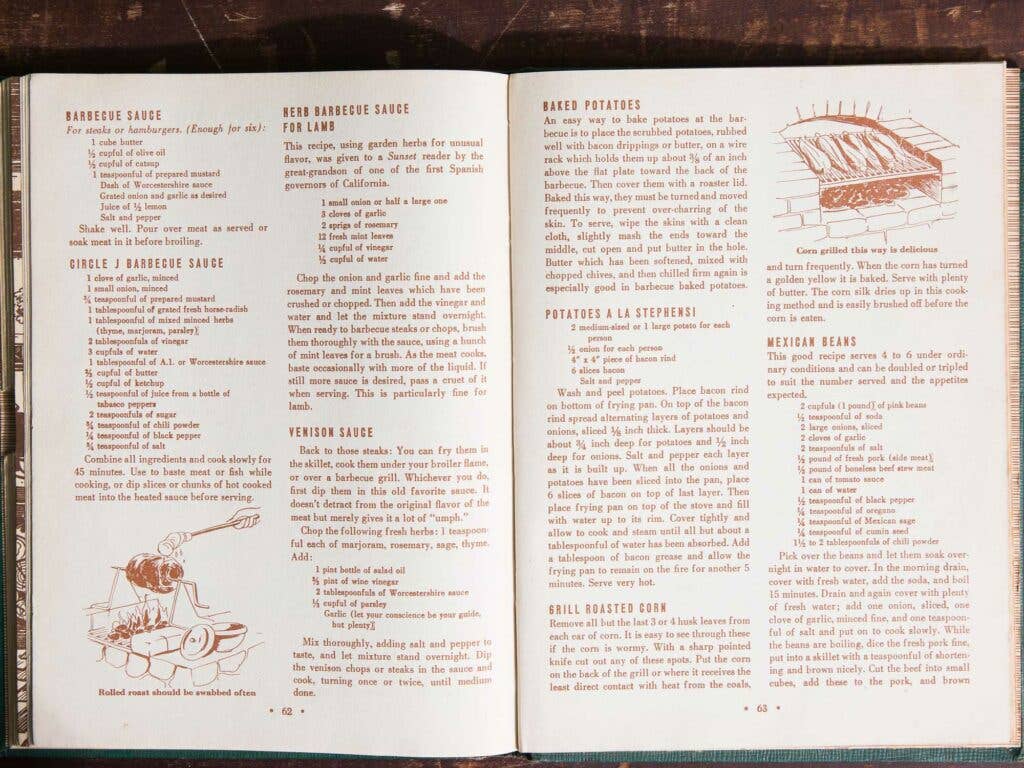 BARBECUE SAUCE
For steaks or hamburgers. (Enough for six):
1 cube butter
½ cupful of olive oil
½ cupful of catsup
1 teaspoonful of prepared mustard
Dash of Worcestershire sauce
Grated onion and garlic as desired
Juice of ½ lemon
Salt and pepper
Shake well. Pour over meat as served or
soak meat in it before broiling.
CIRCLE J BARBECUE SAUCE
1 clove of garlic, minced
1 small onion, minced
¾ teaspoonful of prepared mustard
1 tablespoonful of grated fresh horse-radish
1 tablespoonful of mixed minced herbs
(thyme, marjoram, parsley)
2 tablespoonfuls of vinegar
3 cupfuls of water
1 tablespoonful of A.1. or Worcestershire sauce
cupful of butter
½ cupful of ketchup
½ teaspoonful of juice from a bottle of
tabasco peppers
2 teaspoonfuls of sugar
¾ teaspoonful of chili powder
¼ teaspoonful of black pepper
¾ teaspoonful of salt
Combine all ingredients and cook slowly for
45 minutes. Use to baste meat or fish while
cooking, or dip slices or chunks of hot cooked
meat into the heated sauce before serving.
Rolled roast should be swabbed often
HERB BARBECUE SAUCE
FOR LAMB
This recipe, using garden herbs for unusual
flavor, was given to a Sunset reader by the
great-grandson of one of the first Spanish
governors of California.
1 small onion or half a large one
3 cloves of garlic
2 sprigs of rosemary
12 fresh mint leaves
¼ cupful of vinegar
cupful of water
Chop the onion and garlic fine and add the
rosemary and mint leaves which have been
crushed or chopped. Then add the vinegar and
water and let the mixture stand overnight.
When ready to barbecue steaks or chops, brush
them thoroughly with the sauce, using a bunch
of mint leaves for a brush. As the meat cooks,
baste occasionally with more of the liquid. If
still more sauce is desired, pass a cruet of it
when serving. This is particularly fine for
lamb.
VENISON SAUCE
Back to those steaks: You can fry them in
the skillet, cook them under your broiler flame,
or over a barbecue grill. Whichever you do,
first dip them in this old favorite sauce. It
doesn't detract from the original flavor of the
meat but merely gives it a lot of "umph."
Chop the following fresh herbs: 1 teaspoon-
ful each of marjoram, rosemary, sage, thyme.
Add:
1 pint bottle of salad oil
pint of wine vinegar
2 tablespoonfuls of Worcestershire sauce
cupful of parsley
Garlic (let your conscience be your guide,
but plenty)
Mix thoroughly, adding salt and pepper to
taste, and let mixture stand overnight. Dip
the venison chops or steaks in the sauce and
cook, turning once or twice, until medium
done.
• 62 •
BAKED POTATOES
An easy way to bake potatoes at the bar-
becue is to place the scrubbed potatoes, rubbed
well with bacon drippings or butter, on a wire
rack which holds them up about ⅜ of an inch
above the flat plate toward the back of the
barbecue. Then cover them with a roaster lid.
Baked this way, they must be turned and moved
frequently to prevent over-charring of the
skin. To serve, wipe the skins with a clean
cloth, slightly mash the ends toward the
middle, cut open and put butter in the hole.
Butter which has been softened, mixed with
chopped chives, and then chilled firm again is
especially good in barbecue baked potatoes.
POTATOES A LA STEPHENSI
2 medium-sized or 1 large potato for each
person
½ onion for each person
4" x 4" piece of bacon rind
6 slices bacon
Salt and pepper
Wash and peel potatoes. Place bacon rind
on bottom of frying pan. On top of the bacon
rind spread alternating layers of potatoes and
onions, sliced ⅛ inch thick. Layers should be
about ¾ inch deep for potatoes and ½ inch
deep for onions. Salt and pepper each layer
as it is built up. When all the onions and
potatoes have been sliced into the pan, place
6 slices of bacon on top of last layer. Then
place frying pan on top of the stove and fill
with water up to its rim. Cover tightly and
allow to cook and steam until all but about a
tablespoonful of water has been absorbed. Add
a tablespoon of bacon grease and allow the
frying pan to remain on the fire for another 5
minutes. Serve very hot.
GRILL ROASTED CORN
Remove all but the last 3 or 4 husk leaves from
each ear of corn. It is easy to see through these
if the corn is wormy. With a sharp pointed
knife cut out any of these spots. Put the corn
on the back of the grill or where it receives the
least direct contact with heat from the coals,
Corn grilled this way is delicious
and turn frequently. When the corn has turned
a golden yellow it is baked. Serve with plenty
of butter. The corn silk dries up in this cook-
ing method and is easily brushed off before the
corn is eaten.
MEXICAN BEANS
This good recipe serves 4 to 6 under ordi-
nary conditions and can be doubled or tripled
to suit the number served and the appetites
expected.
2 cupfuls (1 pound) of pink beans
½ teaspoonful of soda
2 large onions, sliced
2 cloves of garlic
2 teaspoonfuls of salt
½ pound of fresh pork (side meat)
½ pound of boneless beef stew meat
1 can of tomato sauce
1 can of water
½ teaspoonful of black pepper
¼ teaspoonful of oregano
¼ teaspoonful of Mexican sage
¼ teaspoonful of cumin seed
1½ to 2 tablespoonfuls of chili powder
Pick over the beans and let them soak over-
night in water to cover. In the morning drain,
cover with fresh water, add the soda, and boil
15 minutes. Drain and again cover with plenty
of fresh water; add one onion, sliced, one
clove of garlic, minced fine, and one teaspoon-
ful of salt and put on to cook slowly. While
the beans are boiling, dice the fresh pork fine,
put into a skillet with a teaspoonful of shorten-
ing and brown nicely. Cut the beef into small
cubes, add these to the pork, and brown
• 63 •